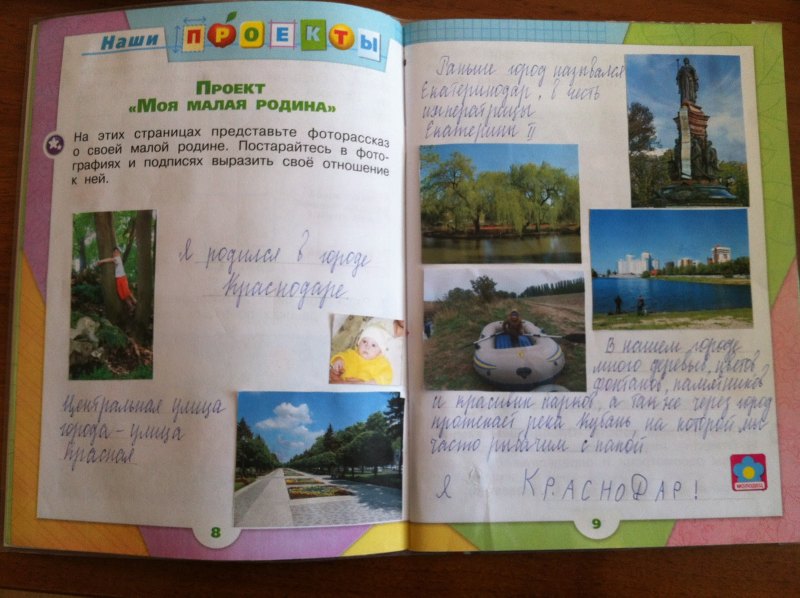 Наши ПРОЕКТЫ
ПРОЕКТ
«МОЯ МАЛАЯ РОДИНА»
На этих страницах представьте фоторассказ
о своей малой родине. Постарайтесь в фото-
графиях и подписях выразить своё отношение
к ней.
Я родился в городе
Краснодаре.
Центральная улица
города – улица
Красная
8
Раньше город назывался
Екатеринодар, в честь
императрицы
Екатерины II
В нашем городе
много деревьев, цветов,
фонтанов, памятников
и красивых парков, а также через город
протекает река Кубань, на которой мы
часто рыбачим с папой
Я КРАСНОДАР!
МОЛОДЕЦ
9